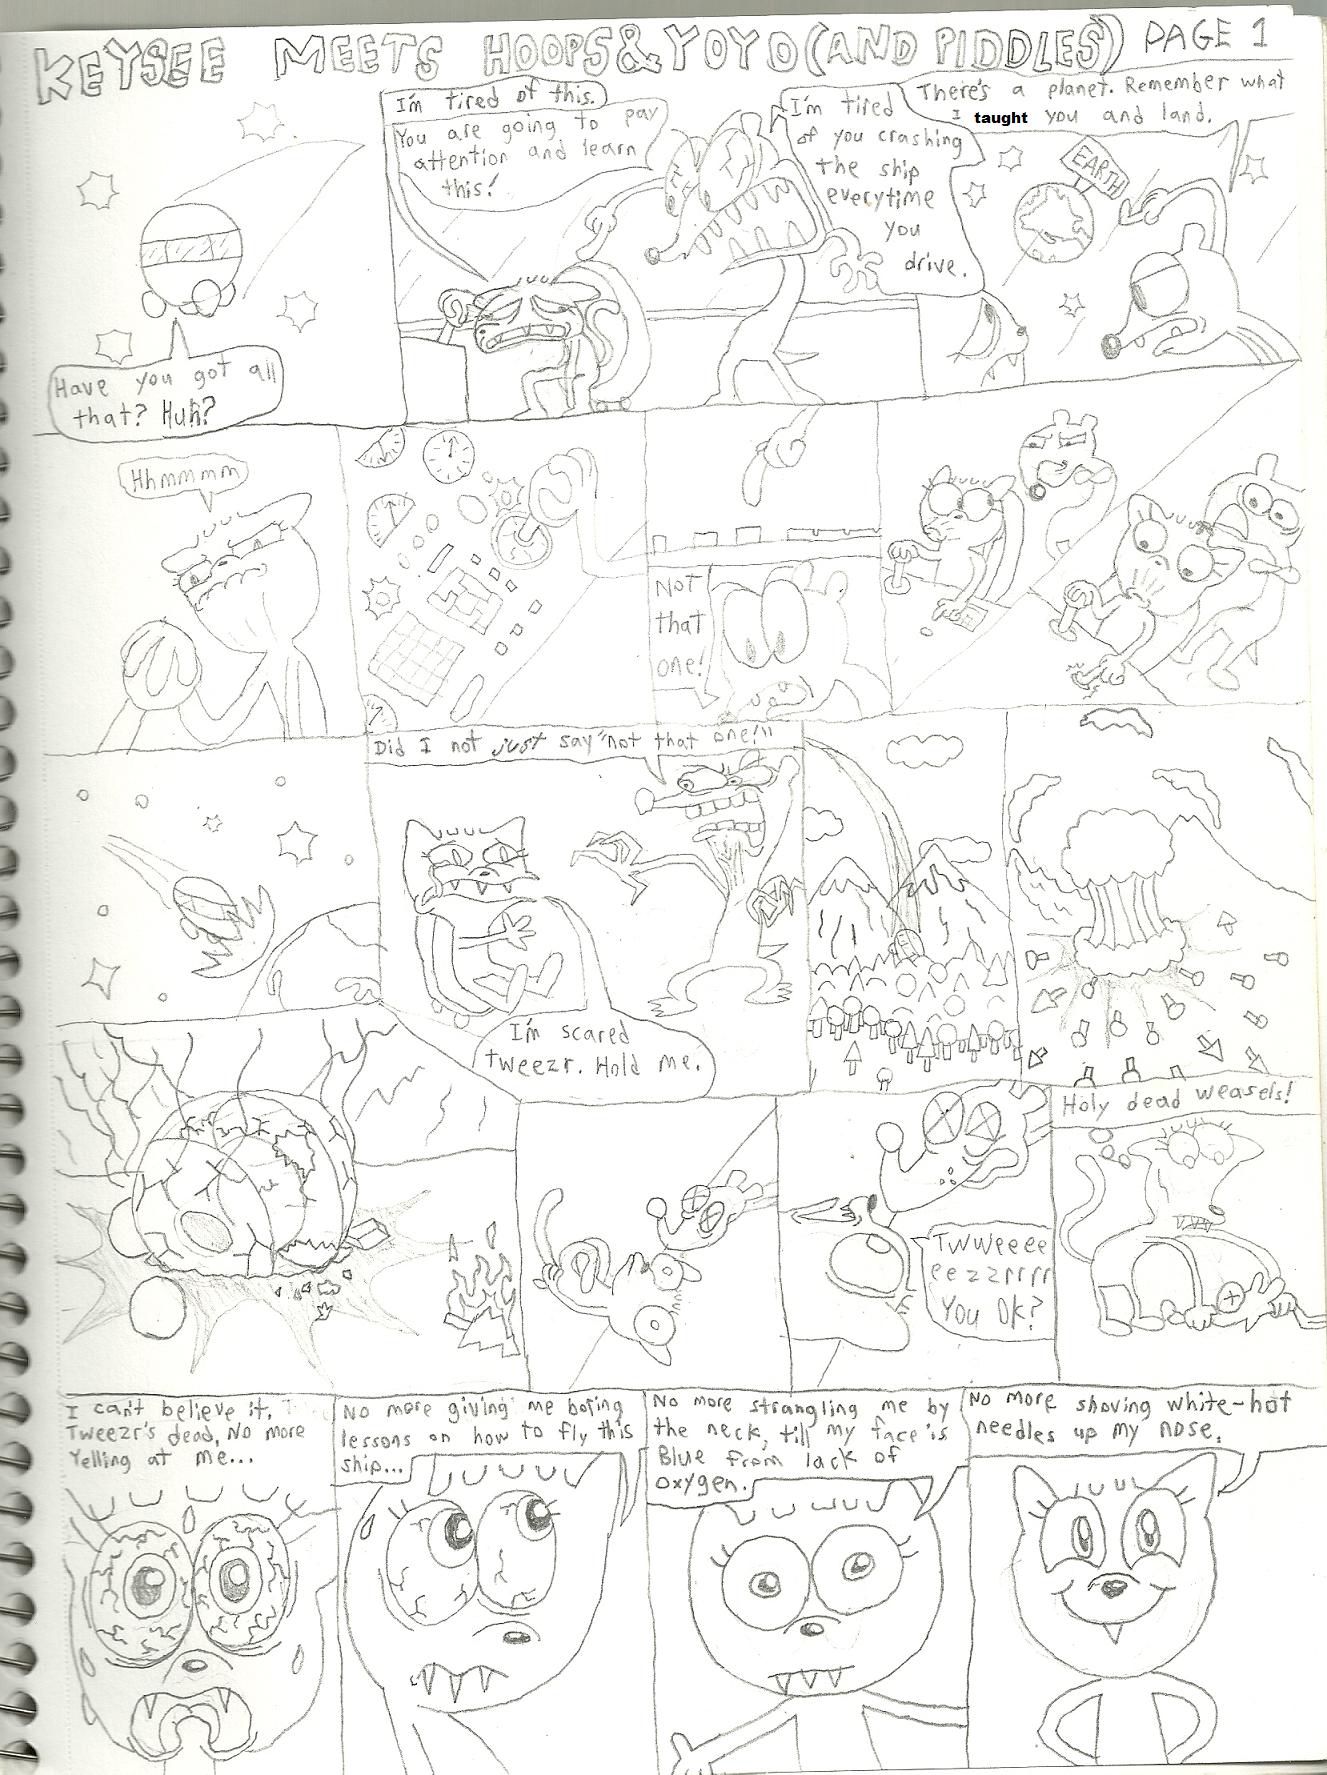 KEYSEE MEETS HOOPS&YOYO(AND PIDDLES) PAGE 1
Have you got all
that? Huh?
I'm tired of this.
You are going to pay
attention and learn
this!
I'm tired
of you crashing
the ship
everytime
you
drive.
There's a planet. Remember what
I taught you and land.
EARTH
Hhmmmm
Not
that
one!
Did I not just say "not that one!"
I'm scared
tweezr. Hold me.
Twweeee
eezzrrrr
You OK?
Holy dead weasels!
I can't believe it.
Tweezr's dead, No more
Yelling at me...
No more giving me boring
lessons on how to fly this
ship...
No more strangling me by
the neck, till my face is
Blue from lack of
oxygen.
No more shoving white-hot
needles up my nose.